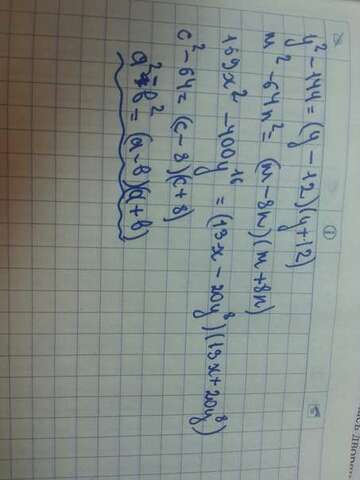 ①
y² - 144 = (y - 12)(y + 12)
m² - 64n² = (m - 8n)(m + 8n)
169x² - 400y¹⁶ = (13x - 20y⁸)(13x + 20y⁸)
c² - 64 = (c - 8)(c + 8)
a² - b² = (a - b)(a + b)